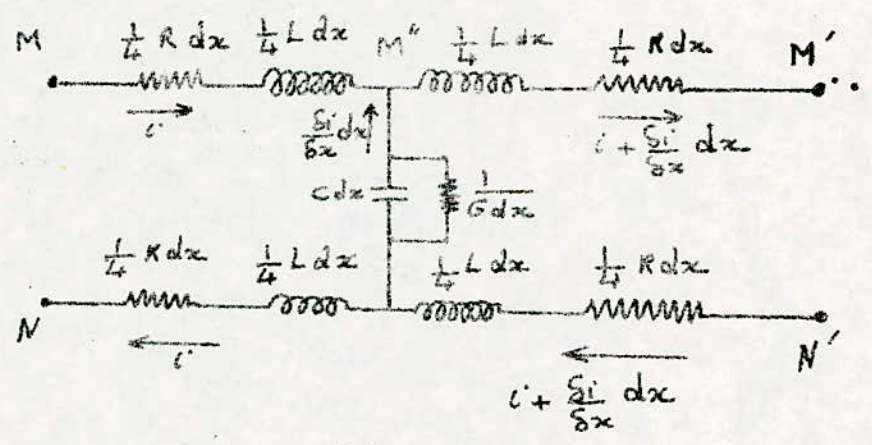 M ¼ R dx ¼ L dx M" ¼ L dx ¼ R dx M'
i δi/δx dx i + δi/δx dx
C dx 1/G dx
¼ R dx ¼ L dx ¼ L dx ¼ R dx
N i N'
i + δi/δx dx